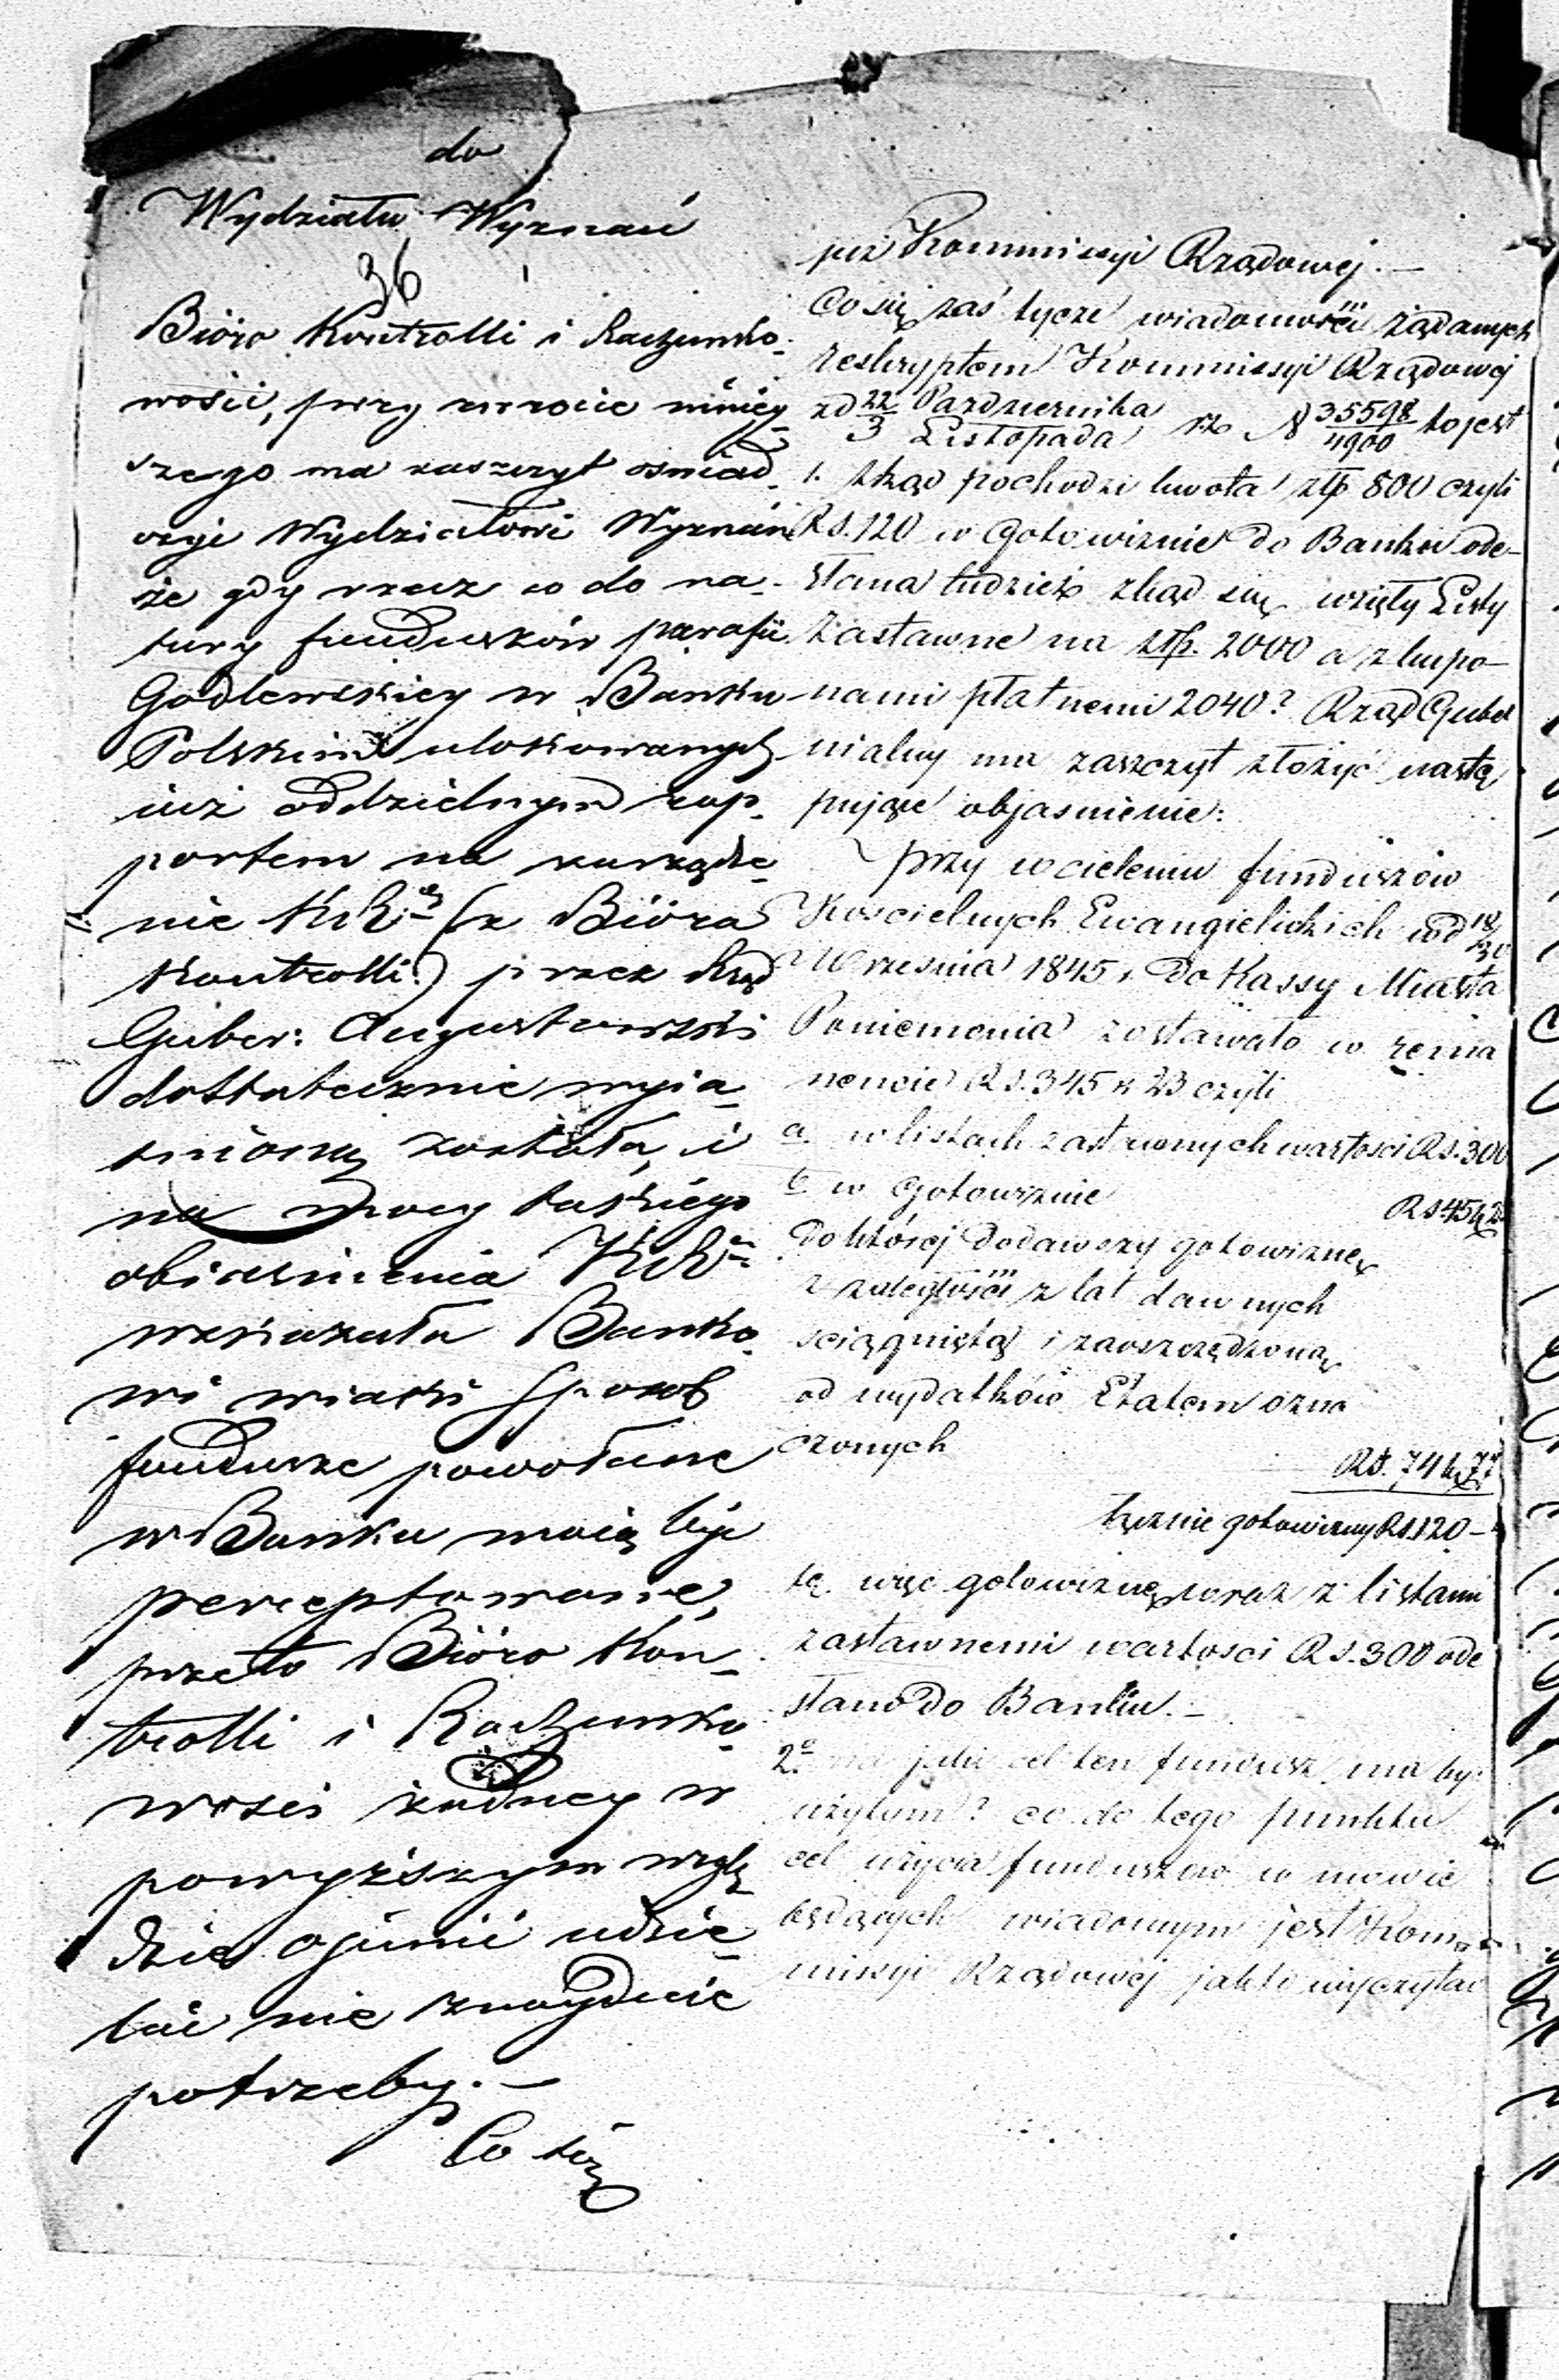 do
Wydziału Wyznań
36
Bióro Kontrolli i Rachunko-
wości, przy zwrocie niniey-
szego ma zaszczyt oświad-
czyć Wydziałowi Wyznań
że gdy rzecz co do na-
tury funduszów parafii
Godlewskiey w Banku
Polskim ulokowanych
iuż oddzielnym rap-
portem na zarządze-
nie KRi (z Bióra
Kontrolli) przez Rząd
Guber: Augustowski
dostatecznie wyia-
śnioną została, i
na mocy takiego
obiaśnienia KR
wskazała Banko-
wi wiaki sposób
fundusze powołane
w Banku maią być
perceptowane,
przeto Bióro Kon-
trolli i Rachunko-
wości żadney w
powyższym wzglę-
dzie opinii udzie-
lać nie znayduie
potrzeby. —
Co też
pis Kommissyi Rządowej. —
Co się zaś tycze wiadomości żądanych
reskryptem Kommissyi Rządowej
zd 22 Pazdziernika / 3 Listopada rb N 35598/4900 to jest
1. Zkąd pochodzi kwota złp 800 czyli
RS. 120 w gotowiznie do Banku ode-
słana tudzież zkąd się wzięły Listy
Zastawne na złp. 2000 a z kupo-
nami płatnemi 2040? Rząd Guber
nialny ma zaszczyt złożyć nastę
pujące objasnienie:
przy wcieleniu funduszów
Koscielnych Ewangielickich wd 18/30
Wrzesnia 1845 r. Do Kassy Miasta
Poniemonia zostawało w rema
nencie RS. 345 k 23 czyli
a. w listach zastawnych wartosci RS. 300
b w Gotowiznie RS 45 k 23
Do której dodawszy gotowiznę
z zaległości z lat dawnych
sciągniętą i zaoszczędzoną
od wydatków Etatem ozna
czonych RS. 74 k 77
Łącznie gotowizny RS. 120 —
tę więc gotowiznę wraz z listami
zastawnemi wartosci RS. 300 ode
słano do Banku. —
2º na jaki cel ten fundusz ma być
użytym? co do tego punktu
cel użycia funduszów w mowie
będących wiadomym jest Kom-
missyi Rządowej jak to wyczytać